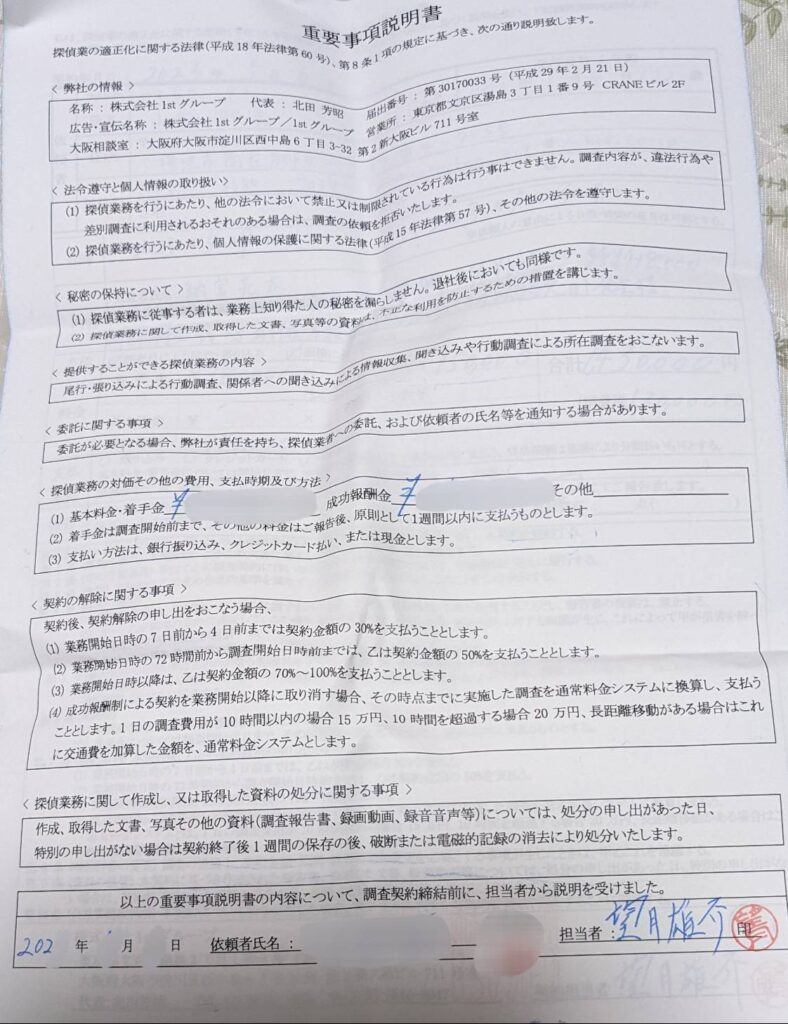 重要事項説明書
探偵業の適正化に関する法律(平成18年法律第60号)、第8条1項の規定に基づき、次の通り説明致します。
< 弊社の情報 >
名称 : 株式会社1stグループ 代表 : 北田 芳昭 届出番号 : 第30170033号 (平成29年2月21日)
広告・宣伝名称 : 株式会社1stグループ/1stグループ 営業所 : 東京都文京区湯島3丁目1番9号 CRANEビル2F
大阪相談室 : 大阪府大阪市淀川区西中島6丁目3-32 第2新大阪ビル711号室
< 法令遵守と個人情報の取り扱い >
(1) 探偵業務を行うにあたり、他の法令において禁止又は制限されている行為は行う事はできません。調査内容が、違法行為や
差別調査に利用されるおそれのある場合は、調査の依頼を拒否いたします。
(2) 探偵業務を行うにあたり、個人情報の保護に関する法律(平成15年法律第57号)、その他の法令を遵守します。
< 秘密の保持について >
(1) 探偵業務に従事する者は、業務上知り得た人の秘密を漏らしません。退社後においても同様です。
(2) 探偵業務に関して作成、取得した文書、写真等の資料は、不正な利用を防止するための措置を講じます。
< 提供することができる探偵業務の内容 >
尾行・張り込みによる行動調査、関係者への聞き込みによる情報収集、聞き込みや行動調査による所在調査をおこないます。
< 委託に関する事項 >
委託が必要となる場合、弊社が責任を持ち、探偵業者への委託、および依頼者の氏名等を通知する場合があります。
< 探偵業務の対価その他の費用、支払時期及び方法 >
(1) 基本料金・着手金 ¥ 成功報酬金 ¥ その他
(2) 着手金は調査開始前まで、その他の料金はご報告後、原則として1週間以内に支払うものとします。
(3) 支払い方法は、銀行振り込み、クレジットカード払い、または現金とします。
< 契約の解除に関する事項 >
契約後、契約解除の申し出をおこなう場合、
(1) 業務開始日時の7日前から4日前までは契約金額の30%を支払うこととします。
(2) 業務開始日時の72時間前から調査開始日時前までは、乙は契約金額の50%を支払うこととします。
(3) 業務開始日時以降は、乙は契約金額の70%~100%を支払うこととします。
(4) 成功報酬制による契約を業務開始以降に取り消す場合、その時点までに実施した調査を通常料金システムに換算し、支払う
こととします。1日の調査費用が10時間以内の場合15万円、10時間を超過する場合20万円、長距離移動がある場合はこれ
に交通費を加算した金額を、通常料金システムとします。
< 探偵業務に関して作成し、又は取得した資料の処分に関する事項 >
作成、取得した文書、写真その他の資料(調査報告書、録画動画、録音音声等)については、処分の申し出があった日、
特別の申し出がない場合は契約終了後1週間の保存の後、破断または電磁的記録の消去により処分いたします。
以上の重要事項説明書の内容について、調査契約締結前に、担当者から説明を受けました。
202 年 月 日 依頼者氏名 : 担当者 : 望月雄介 印